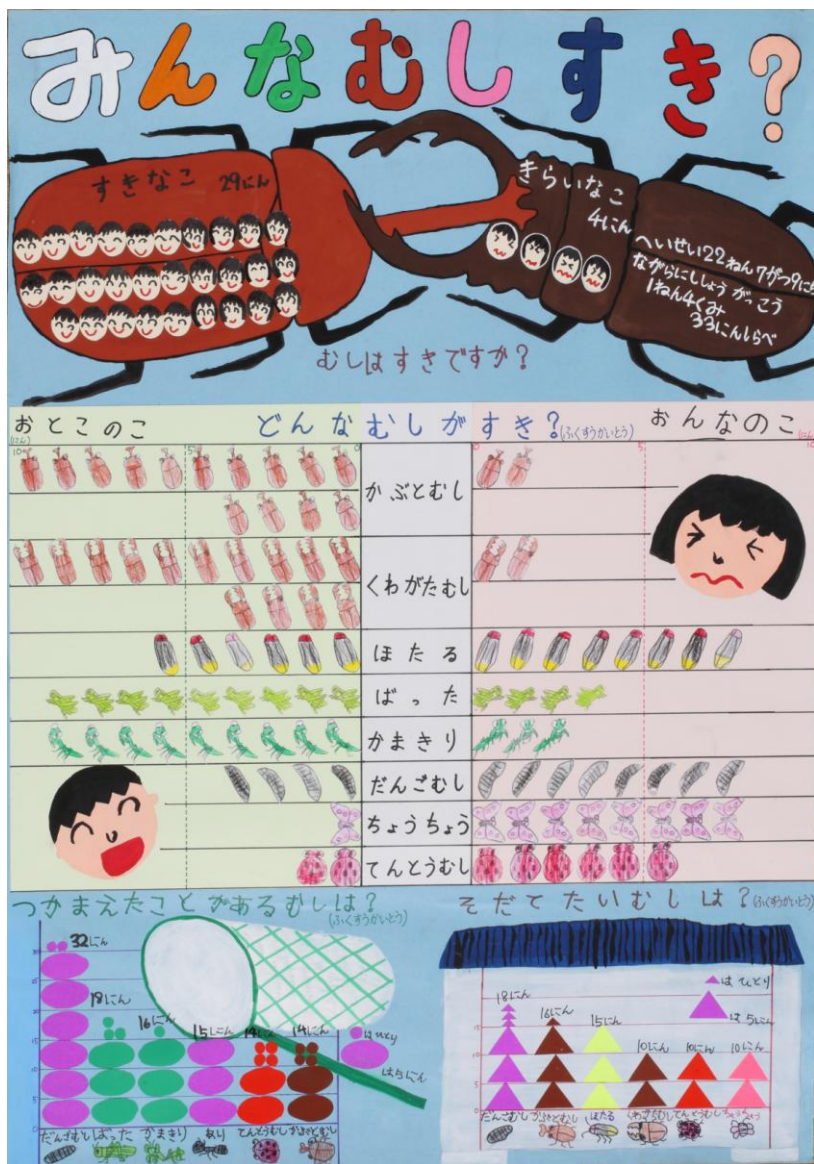 みんなむしすき?
すきなこ 29にん
きらいなこ
4にん
へいせい22ねん7がつ9にち
ながらにししょうがっこう
1ねん4くみ
33にんしらべ
むしはすきですか?
おとこのこ どんなむしがすき?(ふくすうかいとう) おんなのこ
(にん) (にん)
10 5 0 0 5 10
かぶとむし
くわがたむし
ほたる
ばった
かまきり
だんごむし
ちょうちょう
てんとうむし
つかまえたことがあるむしは?
(ふくすうかいとう)
32にん
18にん
16にん
15にん
14にん
14にん
はひとり
は5にん
だんごむし ばった かまきり あり てんとうむし かぶとむし
そだてたいむしは?(ふくすうかいとう)
はひとり
は5にん
18にん
16にん
15にん
10にん
10にん
10にん
だんごむし かぶとむし ほたる くわがたむし てんとうむし ちょうちょう